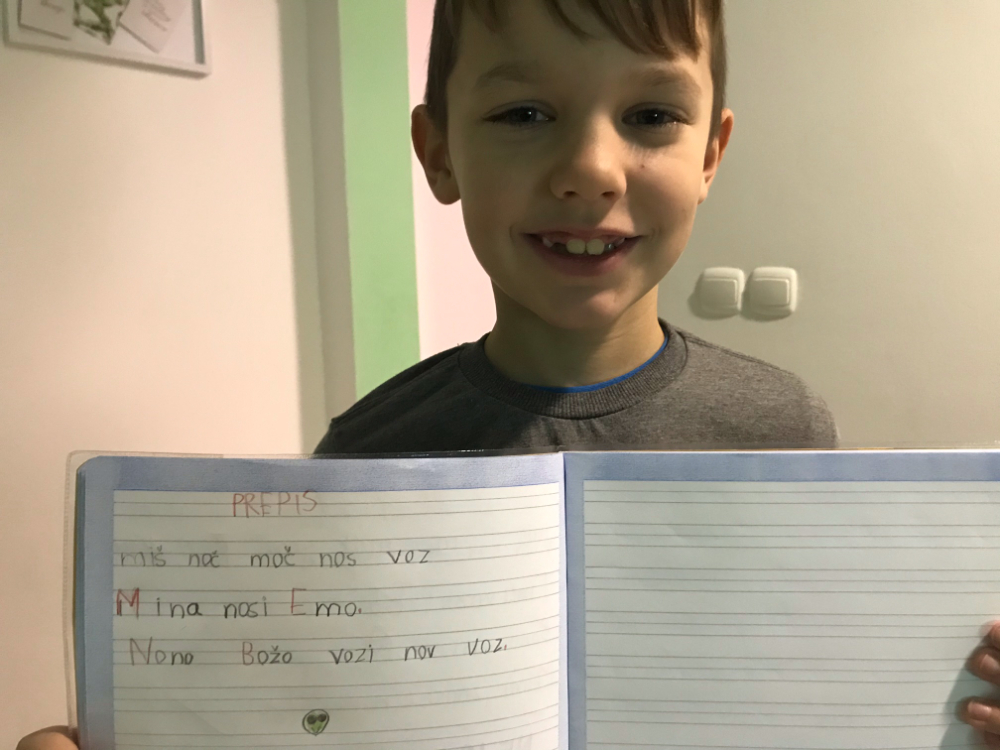 PREPIS
miš noč moč nos voz
Mina nosi Emo.
Nono Božo vozi nov voz.